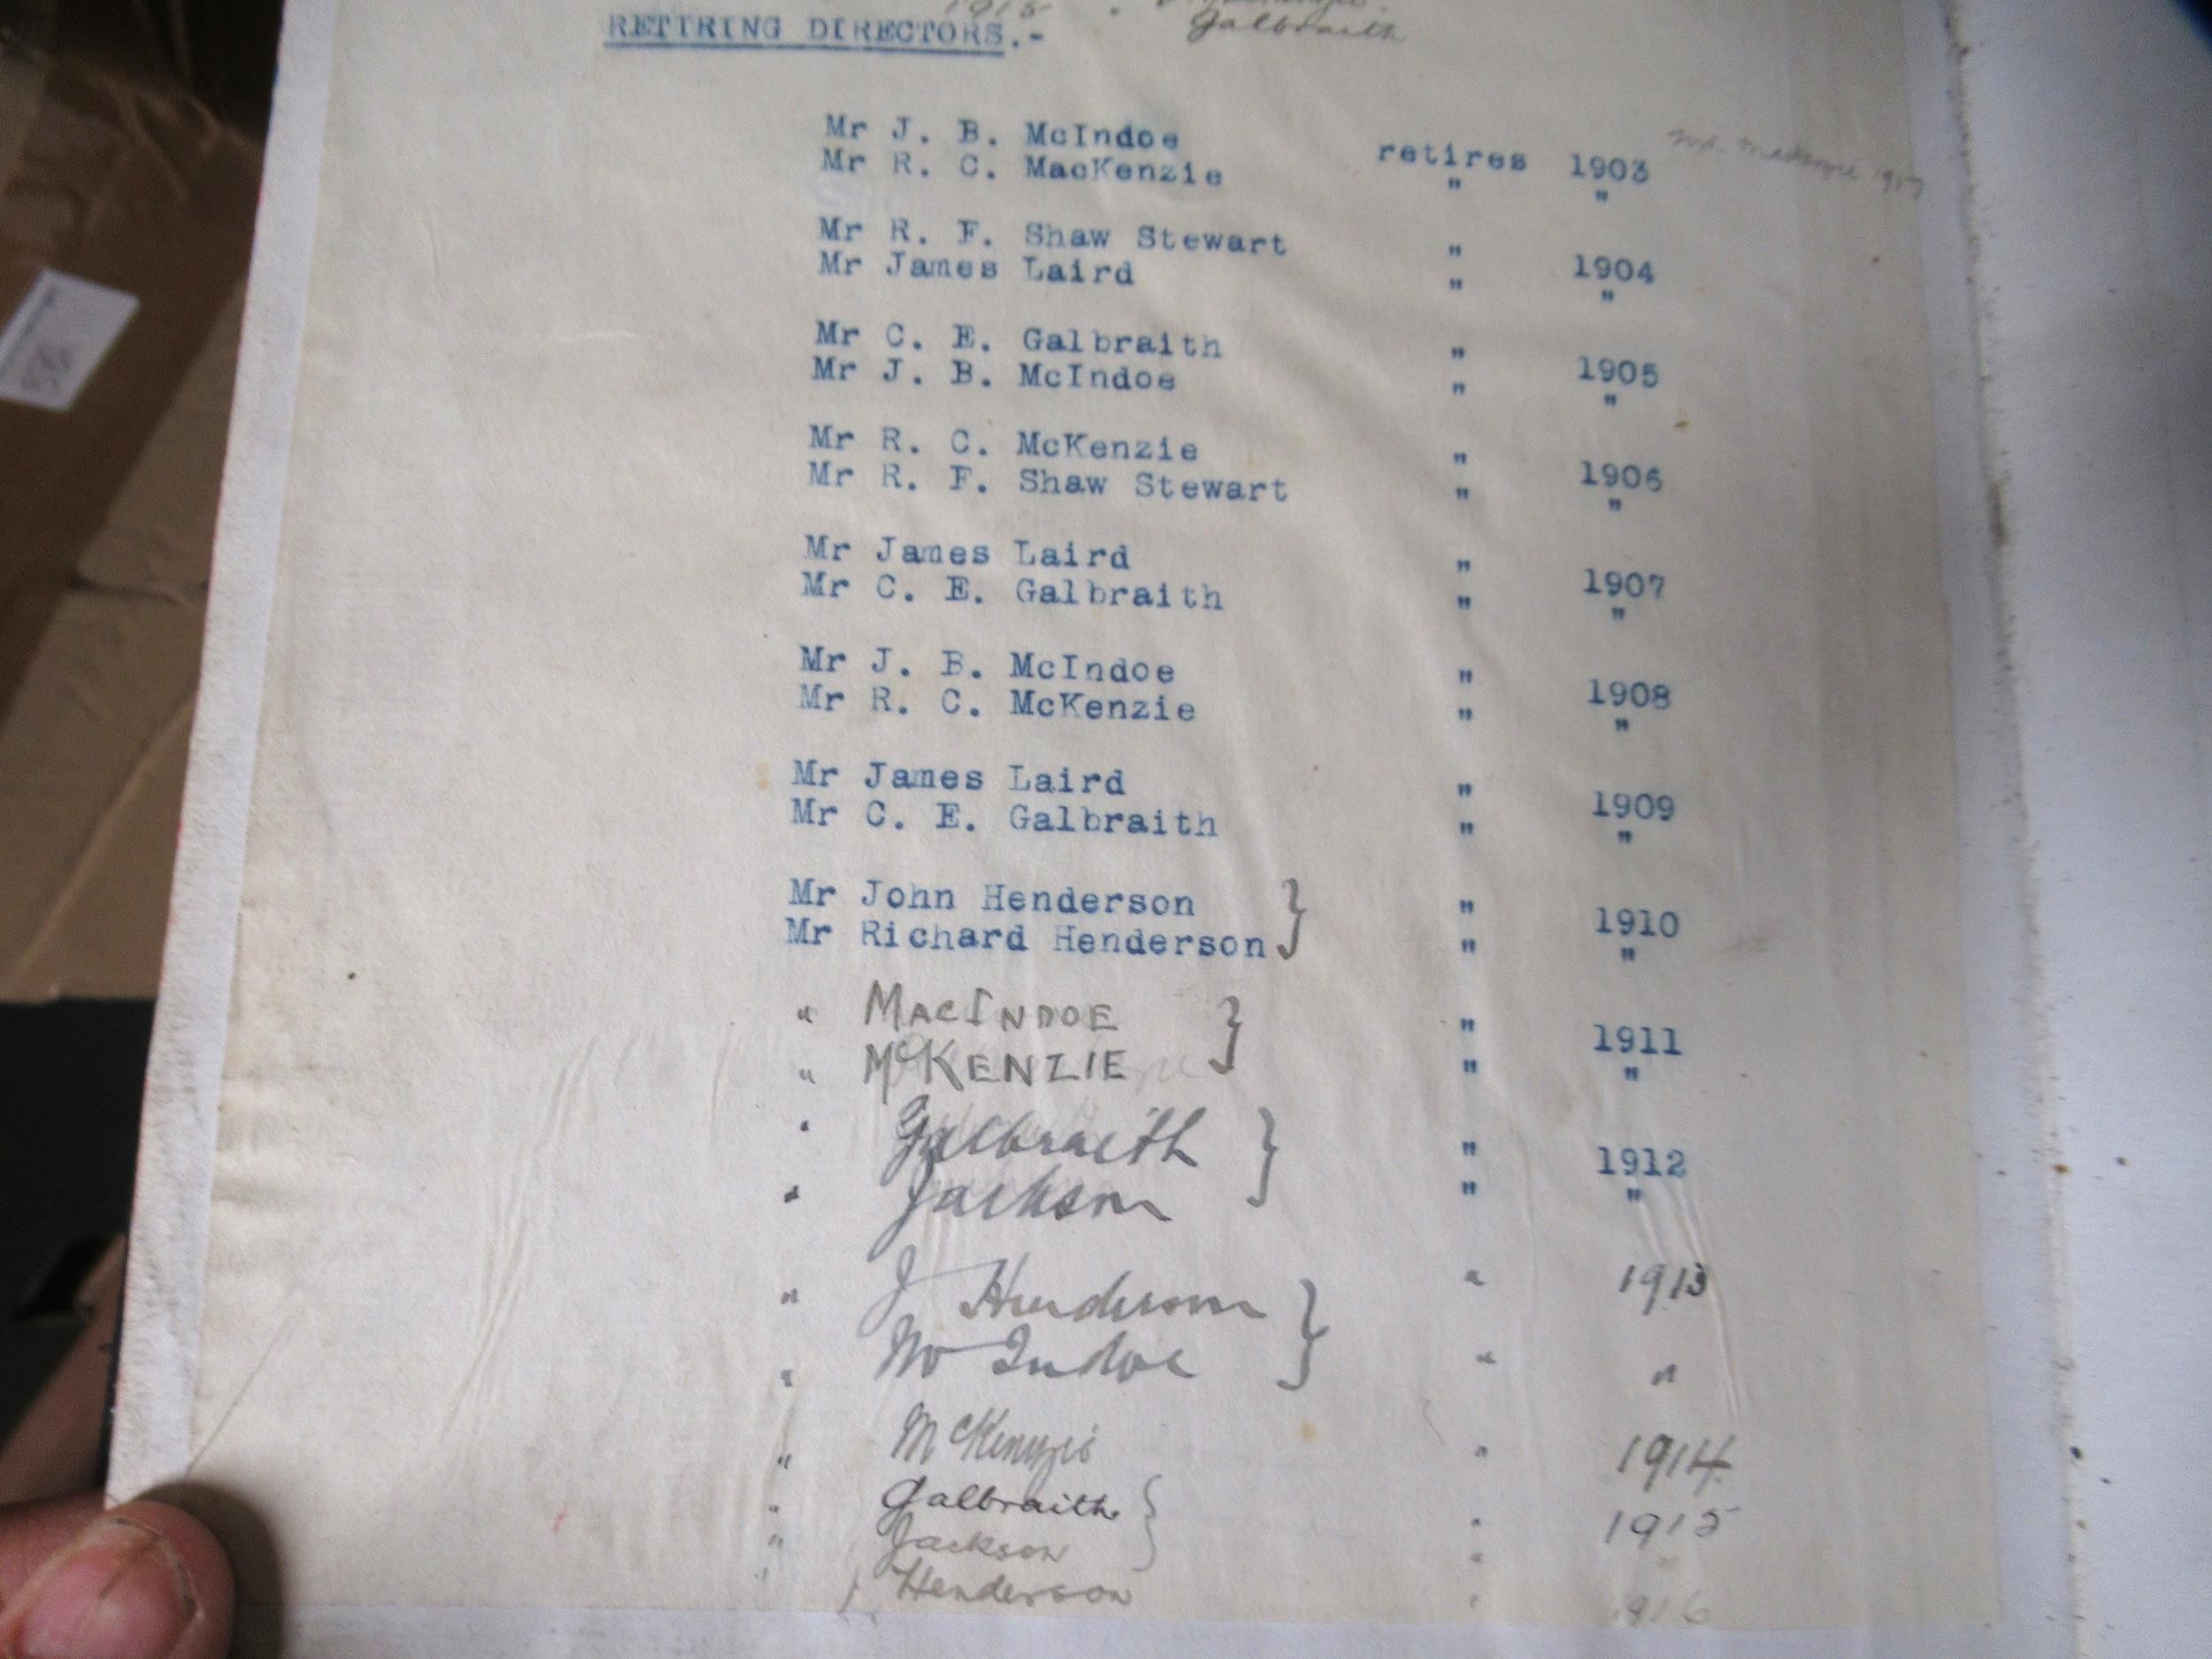 1915 "
Galbraith
RETIRING DIRECTORS.-
Mr J. B. McIndoe retires 1903 Mr. MacKenzie 1917
Mr R. C. MacKenzie " "
Mr R. F. Shaw Stewart " 1904
Mr James Laird " "
Mr C. E. Galbraith " 1905
Mr J. B. McIndoe " "
Mr R. C. McKenzie " 1906
Mr R. F. Shaw Stewart " "
Mr James Laird " 1907
Mr C. E. Galbraith " "
Mr J. B. McIndoe " 1908
Mr R. C. McKenzie " "
Mr James Laird " 1909
Mr C. E. Galbraith " "
Mr John Henderson } " 1910
Mr Richard Henderson } " "
" MACINDOE } " 1911
" McKENZIE } " "
" Galbraith } " 1912
" Jackson } " "
" J Henderson } " 1913
" McIndoe } " "
" McKenzie " 1914
" Galbraith } " 1915
" Jackson } " "
" J Henderson " 1916